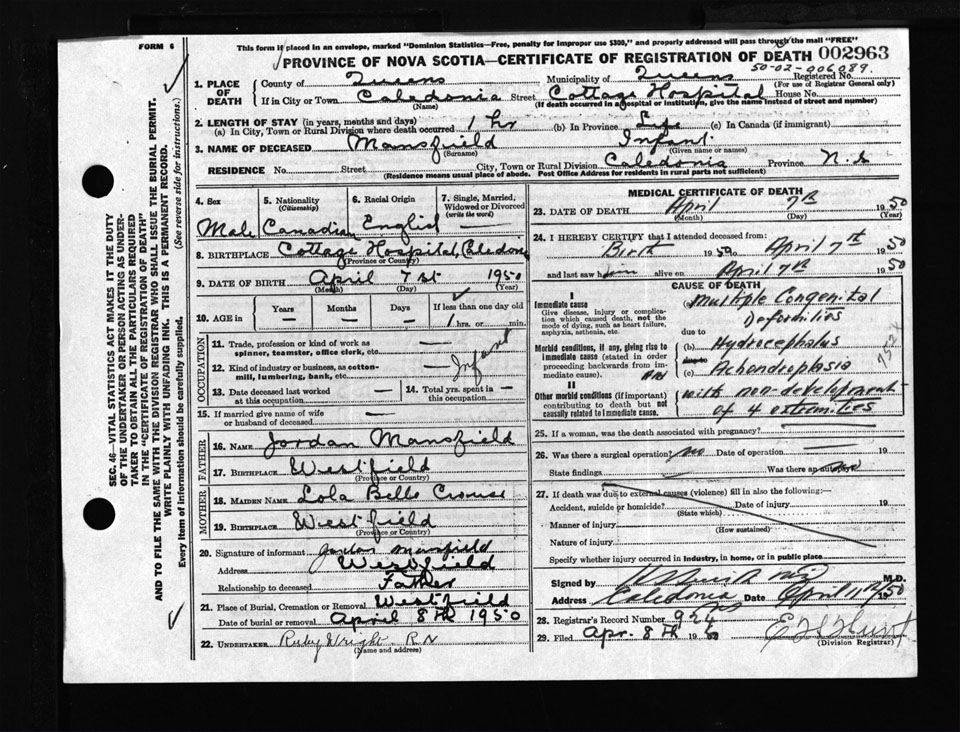 FORM 6
This form if placed in an envelope, marked "Dominion Statistics—Free, penalty for improper use $300," and properly addressed will pass through the mail "FREE"
PROVINCE OF NOVA SCOTIA—CERTIFICATE OF REGISTRATION OF DEATH 002963
50-02-006089.
1. PLACE OF DEATH County of Queens Municipality of Queens Registered No.
(For use of Registrar General only)
If in City or Town Caledonia Street Cottage Hospital House No.
(Name) (If death occurred in a hospital or institution, give the name instead of street and number)
2. LENGTH OF STAY (in years, months and days)
(a) In City, Town or Rural Division where death occurred 1 hr (b) In Province Life (c) In Canada (if immigrant)
3. NAME OF DECEASED Mansfield Infant
(Surname) (Given name or names)
RESIDENCE No. Street City, Town or Rural Division Caledonia Province N.S
(Residence means usual place of abode. Post Office Address for residents in rural parts not sufficient)
4. Sex 5. Nationality (Citizenship) 6. Racial Origin 7. Single, Married, Widowed or Divorced (write the word)
Male Canadian English —
8. BIRTHPLACE Cottage Hospital, Caledonia
(Province or Country)
9. DATE OF BIRTH April 7 st 1950
(Month) (Day) (Year)
10. AGE in Years Months Days If less than one day old
— — — 1 hrs. or min.
OCCUPATION
11. Trade, profession or kind of work as spinner, teamster, office clerk, etc. —
12. Kind of industry or business, as cotton-mill, lumbering, bank, etc. — Infant
13. Date deceased last worked at this occupation — 14. Total yrs. spent in this occupation —
15. If married give name of wife or husband of deceased —
FATHER
16. NAME Jordan Mansfield
17. BIRTHPLACE Westfield
(Province or Country)
MOTHER
18. MAIDEN NAME Lola Belle Crouse
19. BIRTHPLACE Westfield
(Province or Country)
20. Signature of informant Jordan Mansfield
Address Westfield
Relationship to deceased Father
21. Place of Burial, Cremation or Removal Westfield
Date of burial or removal April 8th 1950
22. UNDERTAKER Ruby Wright. R N
(Name and address)
MEDICAL CERTIFICATE OF DEATH
23. DATE OF DEATH April 7th 1950
(Month) (Day) (Year)
24. I HEREBY CERTIFY that I attended deceased from:
Birth 1950 April 7th 1950
and last saw him alive on April 7th 1950
CAUSE OF DEATH
I
Immediate cause (a) Multiple Congenital
Give disease, injury or complication which caused death, not the mode of dying, such as heart failure, asphyxia, asthenia, etc. Deformities
due to
Morbid conditions, if any, giving rise to immediate cause (stated in order proceeding backwards from immediate cause). (b) Hydrocephalus
and (c) Achondroplasia
II
Other morbid conditions (if important) contributing to death but not causally related to immediate cause. with non-development
of 4 extremities
25. If a woman, was the death associated with pregnancy?
26. Was there a surgical operation? no Date of operation 19
State findings Was there an autopsy
27. If death was due to external causes (violence) fill in also the following:—
Accident, suicide or homicide? Date of injury 19
(State which)
Manner of injury
(How sustained)
Nature of injury
Specify whether injury occurred in industry, in home, or in public place
Signed by M.D.
Address Caledonia Date April 11th 1950
28. Registrar's Record Number 924
29. Filed Apr. 8th 1950
(Division Registrar)
SEC. 46—VITAL STATISTICS ACT MAKES IT THE DUTY
OF THE UNDERTAKER OR PERSON ACTING AS UNDER-
TAKER TO OBTAIN ALL THE PARTICULARS REQUIRED
IN THE "CERTIFICATE OF REGISTRATION OF DEATH"
AND TO FILE THE SAME WITH THE DIVISION REGISTRAR WHO SHALL ISSUE THE BURIAL PERMIT.
WRITE PLAINLY WITH UNFADING INK. THIS IS A PERMANENT RECORD.
Every item of information should be carefully supplied. (See reverse side for instructions.)